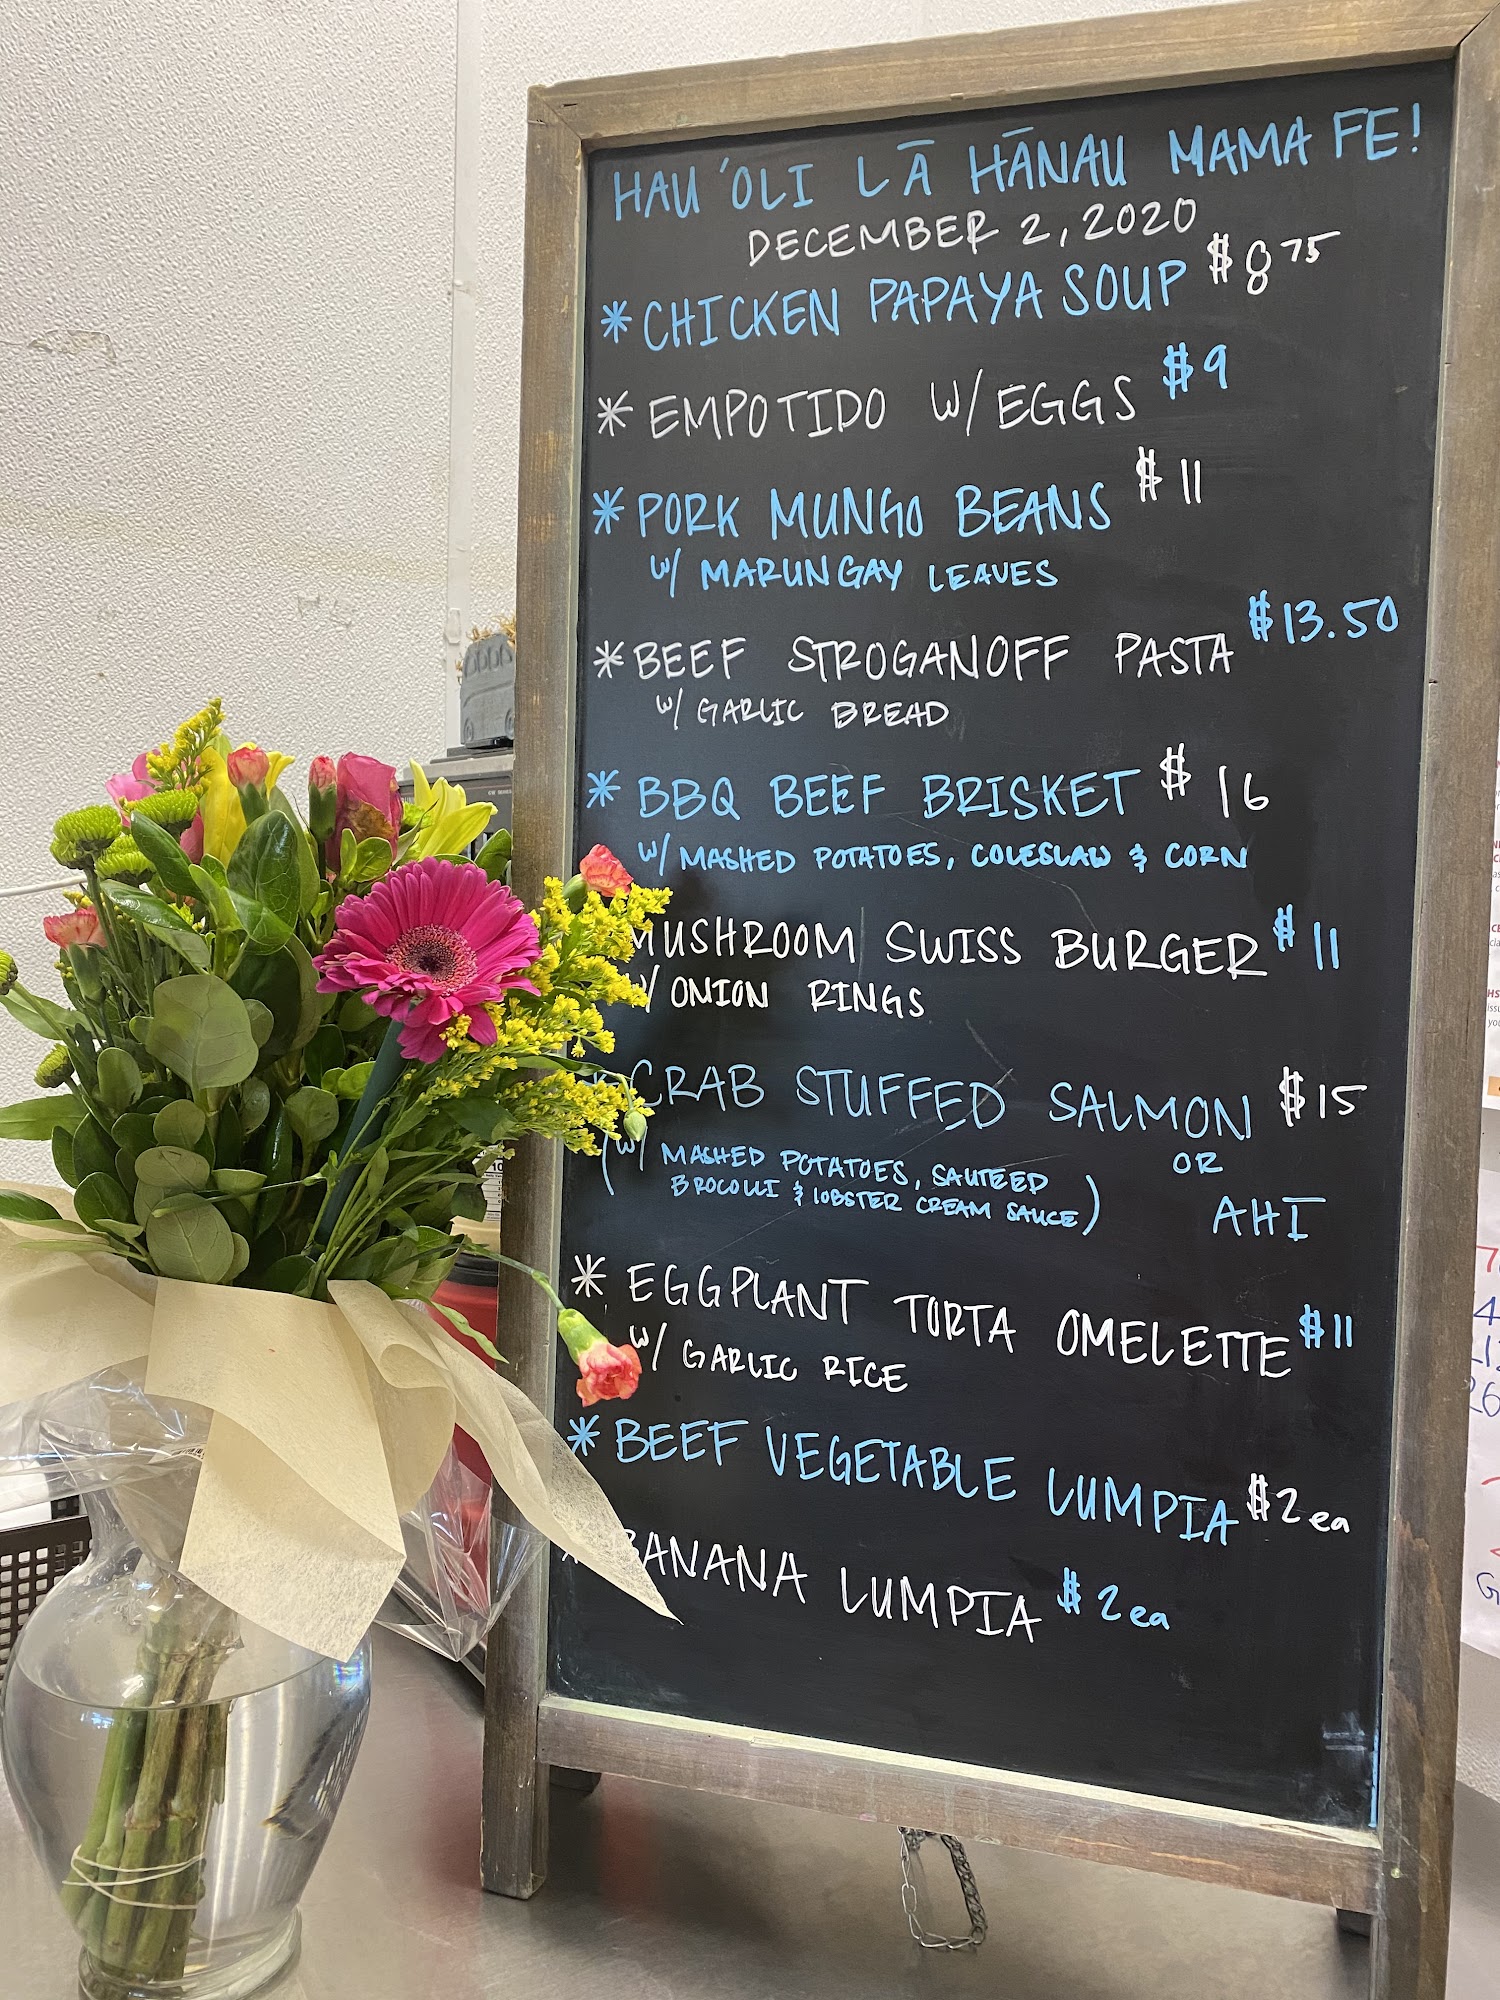 HAU'OLI LĀ HĀNAU MAMA FE!
DECEMBER 2, 2020
* CHICKEN PAPAYA SOUP $8 75
* EMPOTIDO W/ EGGS $9
* PORK MUNGO BEANS $11
W/ MARUNGAY LEAVES
* BEEF STROGANOFF PASTA $13.50
W/ GARLIC BREAD
* BBQ BEEF BRISKET $16
W/ MASHED POTATOES, COLESLAW & CORN
MUSHROOM SWISS BURGER $11
W/ ONION RINGS
* CRAB STUFFED SALMON $15
OR
AHI
(W/ MASHED POTATOES, SAUTEED
BROCOLLI & LOBSTER CREAM SAUCE)
* EGGPLANT TORTA OMELETTE $11
W/ GARLIC RICE
* BEEF VEGETABLE LUMPIA $2 ea
* BANANA LUMPIA $2 ea